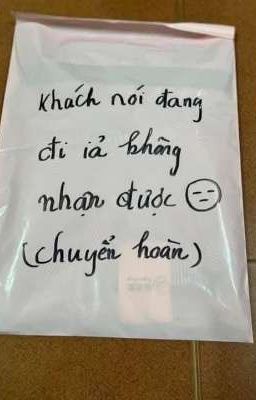 Khách nói đang
đi iả không
nhận được
(chuyển hoàn)